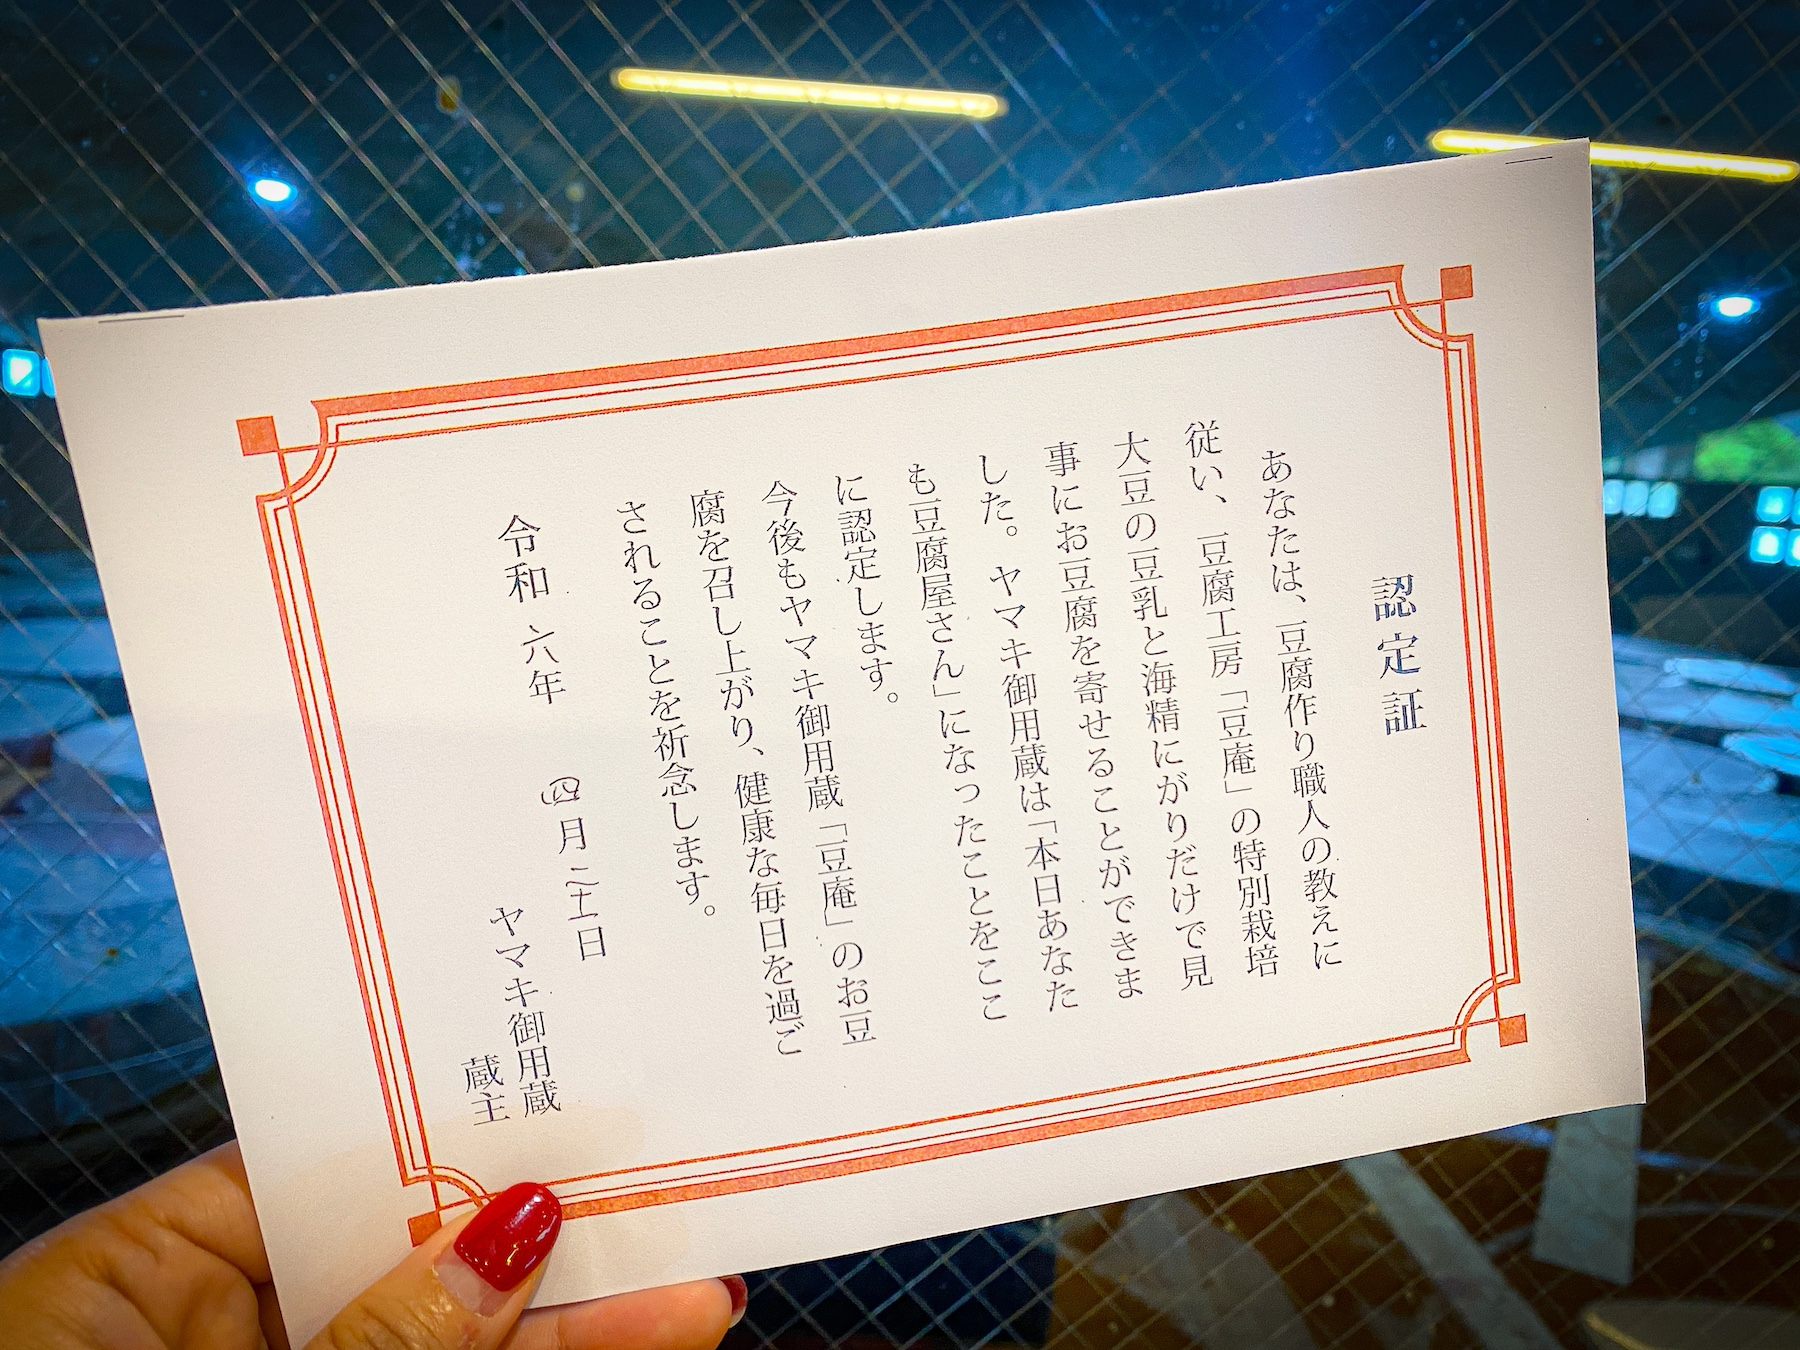 認定証
あなたは、豆腐作り職人の教えに
従い、豆腐工房「豆庵」の特別栽培
大豆の豆乳と海精にがりだけで見
事にお豆腐を寄せることができま
した。ヤマキ御用蔵は「本日あなた
も豆腐屋さん」になったことをここ
に認定します。
今後もヤマキ御用蔵「豆庵」のお豆
腐を召し上がり、健康な毎日を過ご
されることを祈念します。
令和 六年 四月二十一日
ヤマキ御用蔵
蔵主